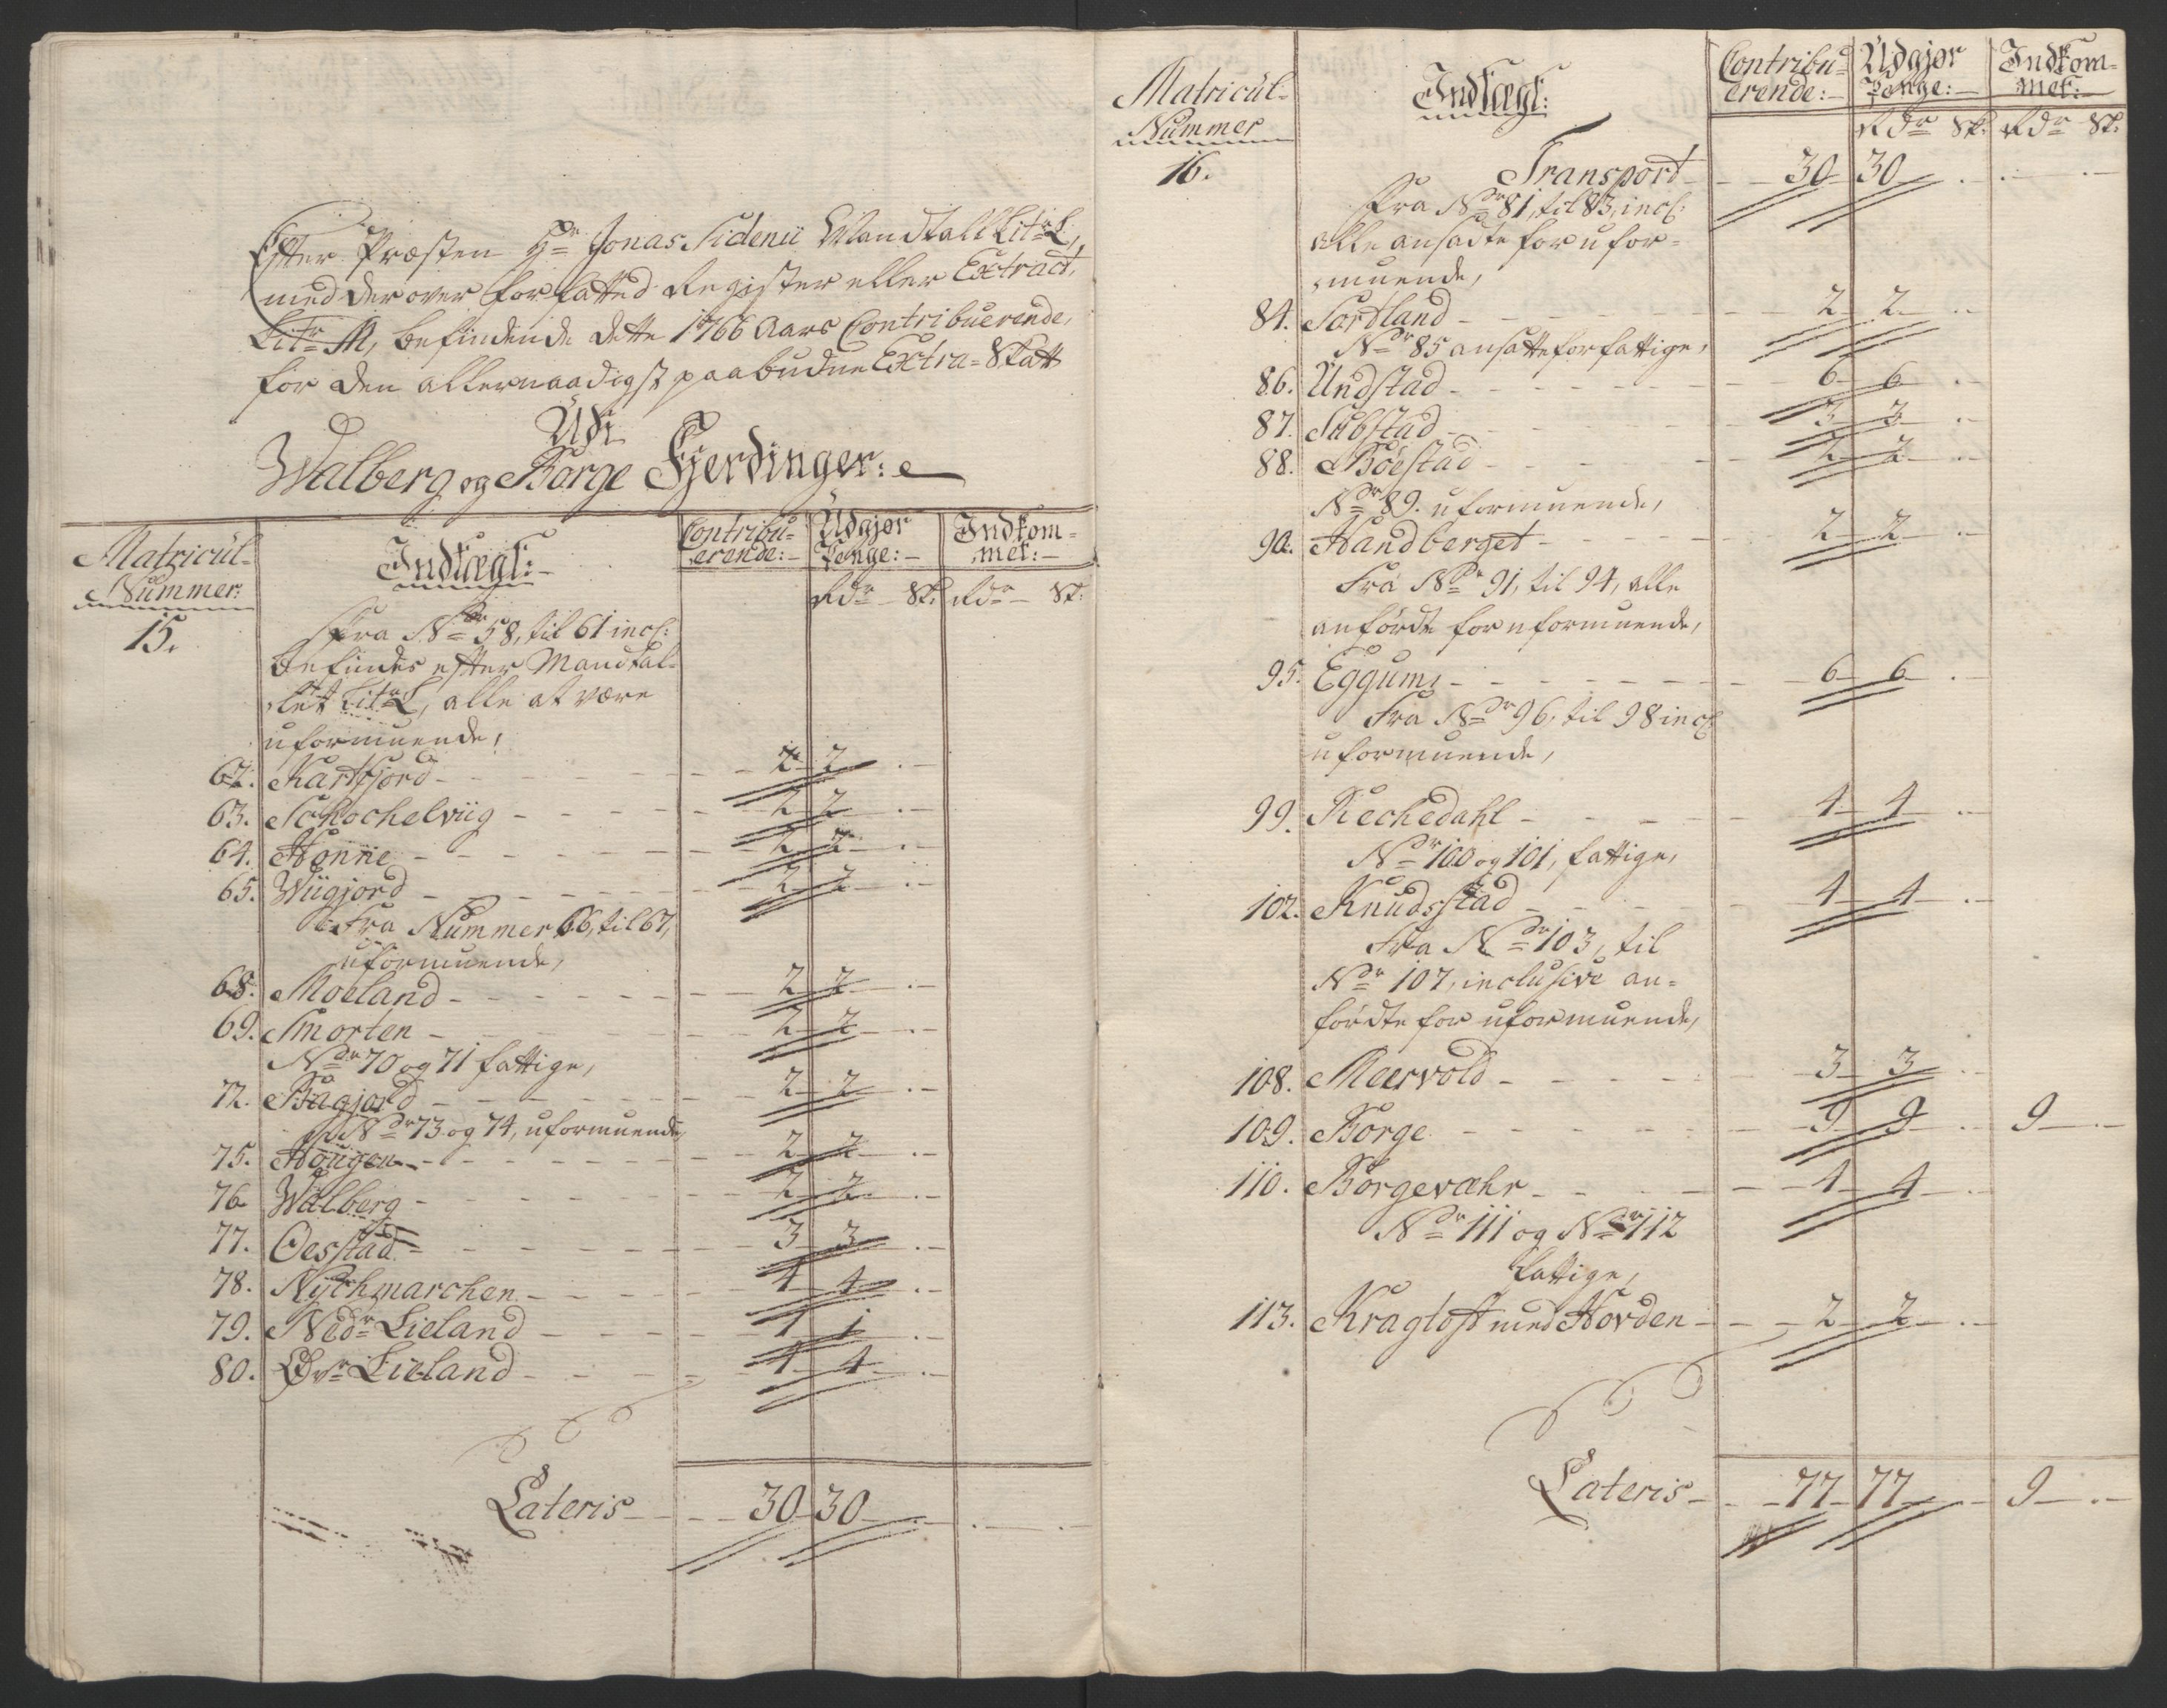 Efter Præsten Hr Jonas Sidenii Mandtall Litr L,
med derover forfatted Register eller Extract,
Litr M, befindende dette 1766 Aars Contribuerende,
for den allernaadigst paabudne Extra-Skatt
Udi
Walberg og Borge Fjerdinger:
Matricul-
Nummer:
Indtægt:
Contribu-
erende:
Udgjør
Penge:
Indkom-
met:
Rdr Sk: Rdr Sk:
15.
Fra Ndr 58, til 61 incl:
befindes efter Mandtal-
let Litr L, alle at være
uformuende,
62. Kartfjord - 2 2 . -
63. Schochelviig - 2 2 . -
64. Hønne - 2 2 . -
65. Wiigjord - 2 2 . -
Fra Nummer 66, til 67,
uformuende,
68. Moeland - 2 2 . -
69. Smorten - 2 2 . -
Ndr 70 og 71 fattige,
72. Bagjord - 2 2 . -
Ndr 73 og 74, uformuende,
75. Hougen - 2 2 . -
76 Walberg - 2 2 . -
77. Oesstad - 3 3 . -
78. Nychmarchen - 4 4 . -
79. Nedr Lieland - 1 1 . -
80. Øvr Lieland - 4 4 . -
Lateris - 30 30 . - . -
Matricul-
Nummer
Indtægt:
Contribu-
erende:
Udgjør
Penge:
Indkom-
met:
Rdr Sk: Rdr Sk:
16.
Transport - 30 30 . - . -
Fra Ndr 81, til 83, incl:
alle ansadte for ufor-
muende,
84. Sortland - 2 2 . -
Ndr 85 ansatte for fattige,
86. Undstad - 6 6 . -
87. Sabstad - 3 3 . -
88. Bøestad - 2 2 . -
Ndr 89. uformuende,
90. Handberget - 2 2 . -
Fra Ndr 91, til 94, alle
anførdte for uformuende,
95. Eggum - 6 6 . -
Fra Ndr 96, til 98 incl:
uformuende,
99. Rechedahl - 4 4 . -
Ndr 100 og 101, fattige,
102. Knudsstad - 4 4 . -
Fra Ndr 103, til
Ndr 107, inclusive an-
førdte for uformuende,
108. Meervold - 3 3 . -
109. Borge - 9 9 . - 9 . -
110. Borgeværhr - 4 4 . -
Ndr 111 og Ndr 112
fattige,
113. Kragtoft med Hovden - 2 2 . -
Lateris - 77 77 . - 9 . -